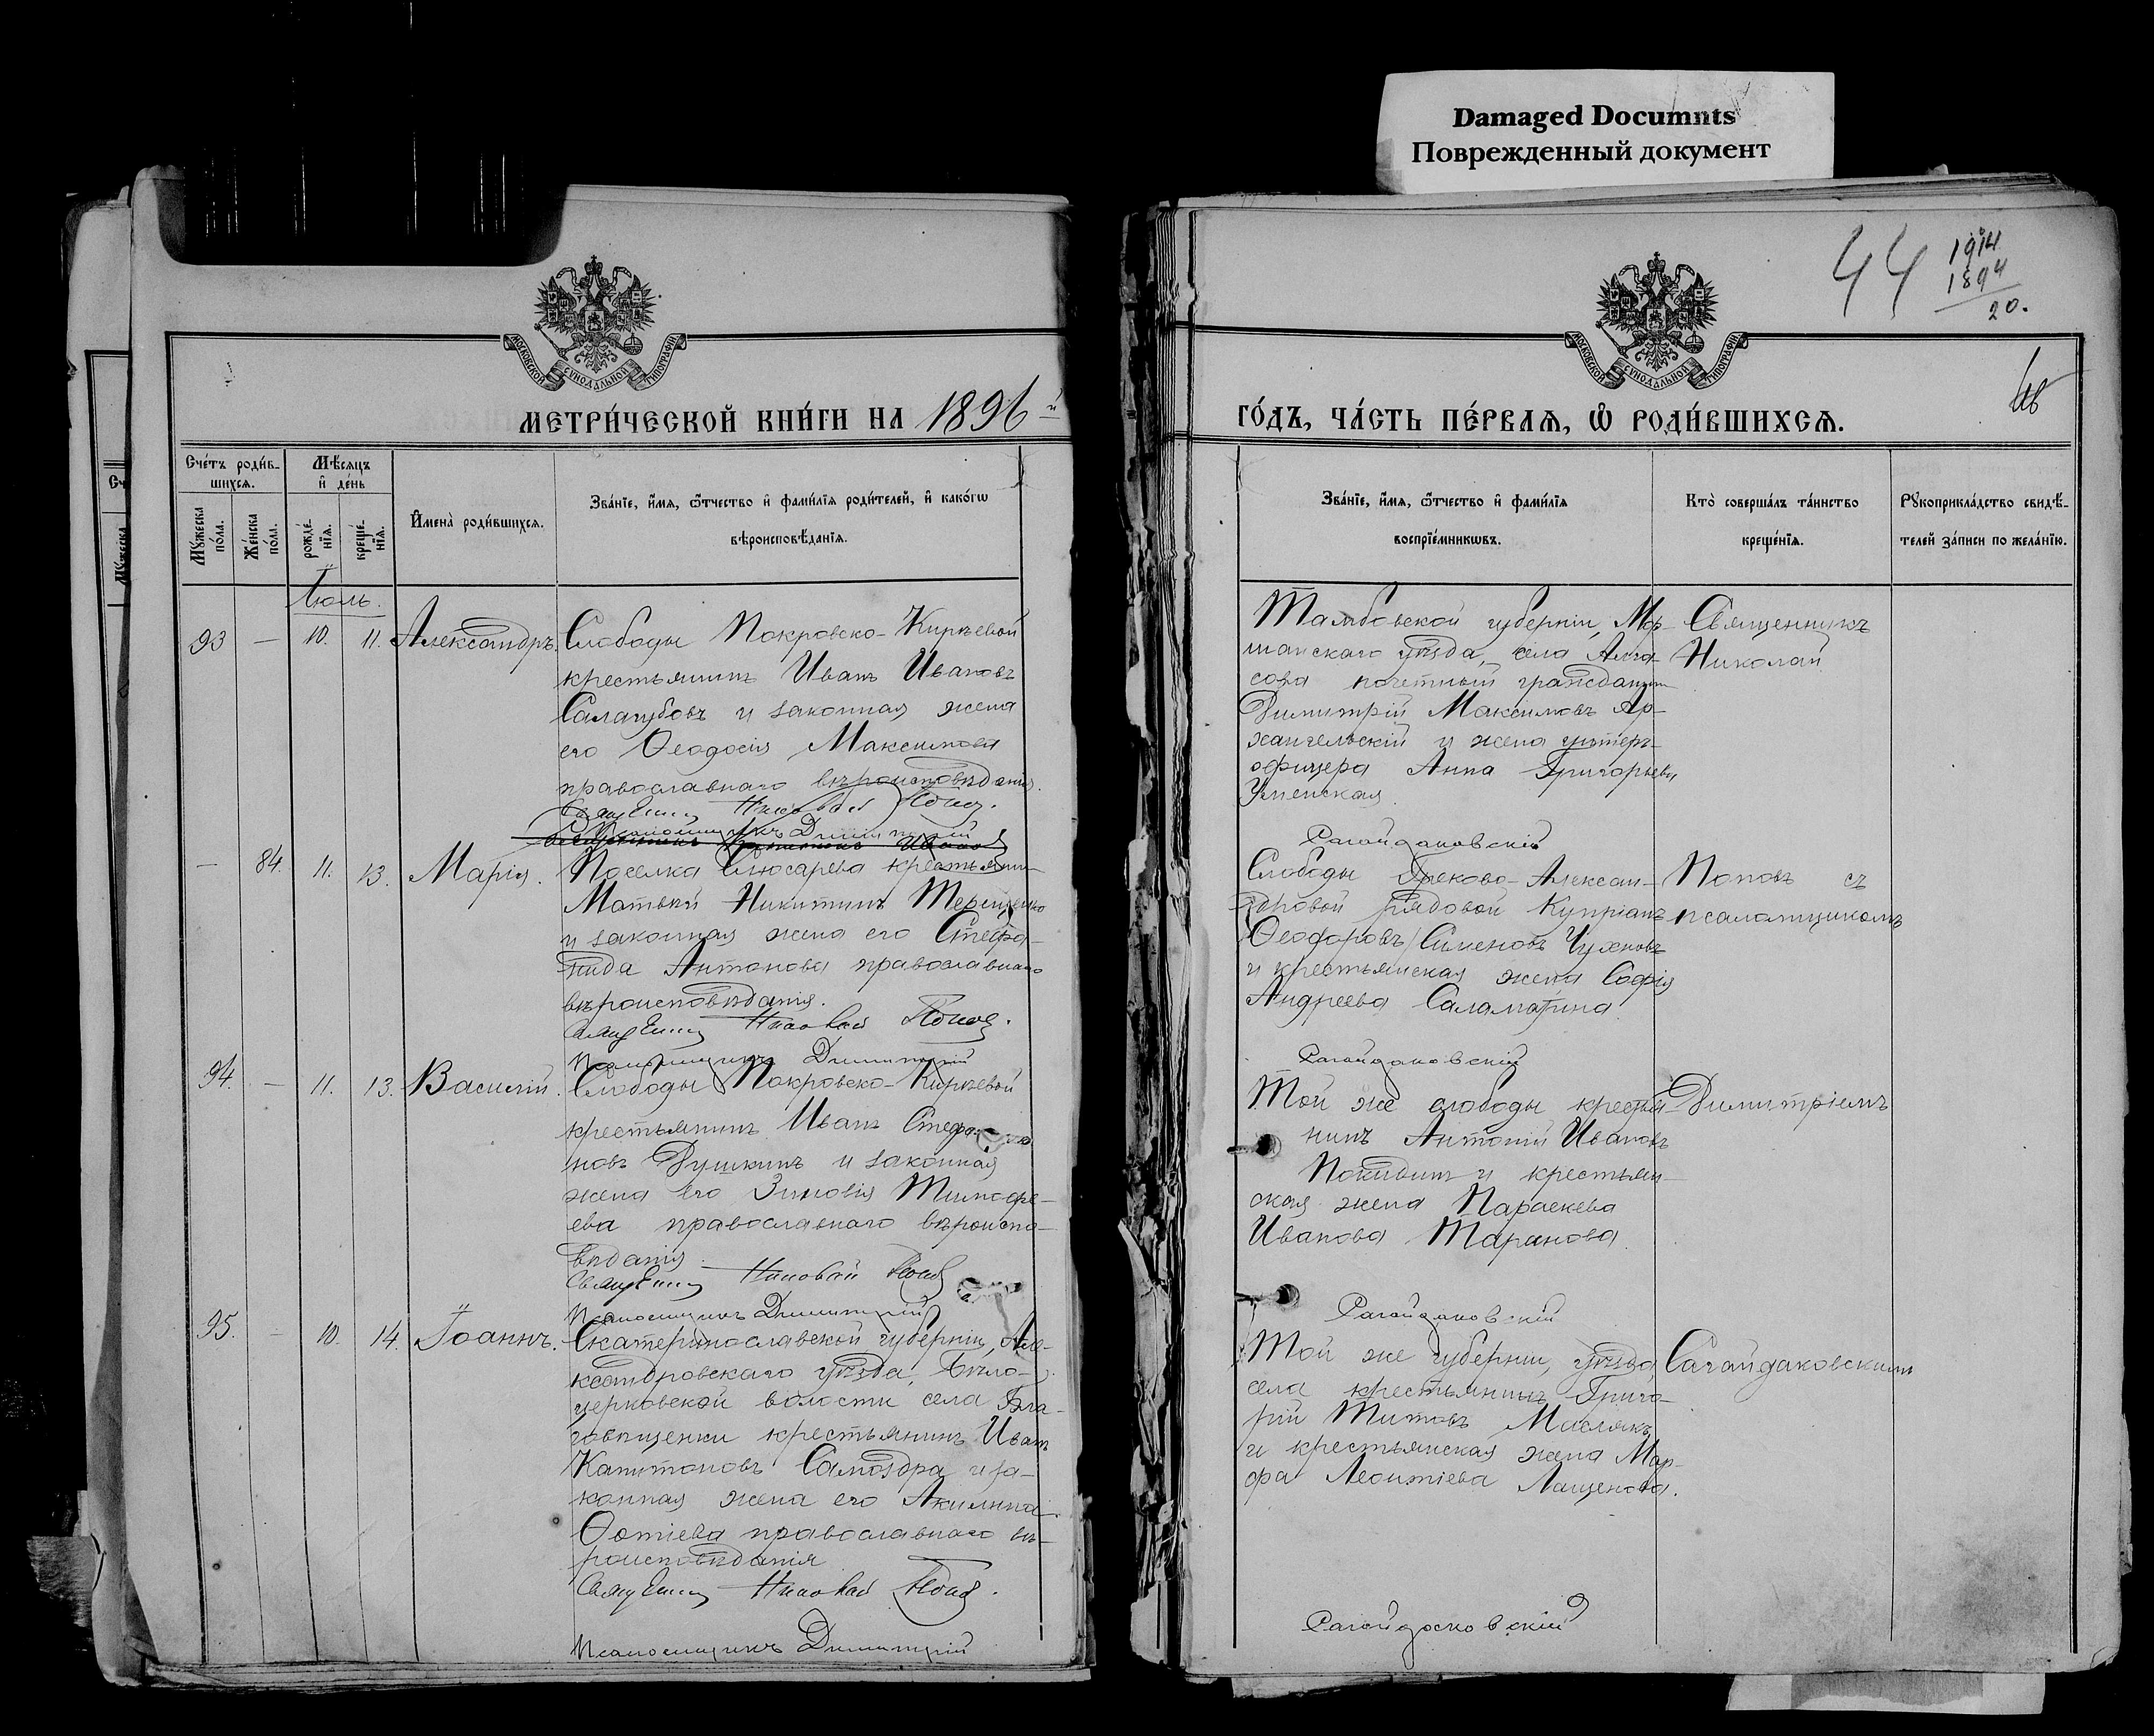 Damaged Documnts
Поврежденный документ
44
1914
1894
20.
МОСКОВСКОЙ СѴНОДАЛЬНОЙ ТИПОГРАФІИ
МОСКОВСКОЙ СѴНОДАЛЬНОЙ ТИПОГРАФІИ
МЕТРИ́ЧЕСКОЙ КНИ́ГИ НА 1896 й
ГО́ДЪ, ЧА́СТЬ ПЕ́РВАѦ, Ѡ҆ РОДИ́ВШИХСѦ.
Сче́тъ роди́в-
шихсѧ.
Мѣ́сѧцъ
и҆ де́нь
Мꙋ́жеска
по́ла.
Же́нска
по́ла.
рожде́-
нїѧ.
креще́-
нїѧ.
И҆мена̀ роди́вшихсѧ.
Зва́нїе, и҆́мѧ, ѻ҆́тчество и҆ фами́лїѧ роди́телей, и҆ како́гѡ
вѣроисповѣ́данїѧ.
Зва́нїе, и҆́мѧ, ѻ҆́тчество и҆ фами́лїѧ
воспрїе́мникѡвъ.
Кто̀ соверша́лъ та́инство
креще́нїѧ.
Рꙋкоприкла́дство свидѣ́-
телей за́писи по жела́нїю.
Іюль.
93 — 10. 11. Александръ.
Слободы Покровско-Киръевой
крестьянинъ Иванъ Ивановъ
Салагубовъ и законная жена
его Ѳеодосія Максимова
православнаго вѣроисповѣданія.
Священникъ Николай Попов.
Псаломщикъ Димитрій
Тамбовской губерніи, Мор-
шанскаго уѣзда, села Алга-
сова почетный гражданинъ
Димитрій Максимовъ Ар-
хангельскій и жена унтеръ-
офицера Анна Григорьева
Успенская.
Сагайдаковскій
Священникъ
Николай
— 84. 11. 13. Марія.
Поселка Слюсарева крестьянин
Матвѣй Никитинъ Терещенко
и законная жена его Стефа-
нида Антонова православнаго
вѣроисповѣданія.
Священникъ Николай Попов.
Псаломщикъ Димитрій
Слободы Греково-Алексан-
дровой рядовой Купріанъ
Ѳеодоровъ Сименовъ Чухновъ
и крестьянская жена Софія
Андреева Саламатина.
Сагайдаковскій
Поповъ съ
псаломщикомъ
94. — 11. 13. Василій.
Слободы Покровско-Киръевой
крестьянинъ Иванъ Стефа-
новъ Душкинъ и законная
жена его Зиновія Тимофе-
ева православнаго вѣроиспо-
вѣданія
Священникъ Николай Попов
Псаломщикъ Димитрій
Той же слободы крестья-
нинъ Антоній Ивановъ
Покидинъ и крестьян-
ская жена Параскева
Иванова Таранова.
Сагайдаковскій
Димитріемъ
95. — 10. 14. Іоаннъ.
Екатеринославской губерніи, Але-
ксандровскаго уѣзда, Бѣло-
церковской волости села Бла-
говѣщенки крестьянинъ Иванъ
Капитоновъ Самоздра и за-
конная жена его Акилина
Фотіева православнаго вѣ-
роисповѣданія
Священникъ Николай Попов.
Псаломщикъ Димитрій
Той же губерніи, уѣзда,
села крестьянинъ Григо-
рій Титовъ Маслякъ
и крестьянская жена Мар-
фа Леонтіева Лащенова.
Сагайдаковскій
Сагайдаковскимъ